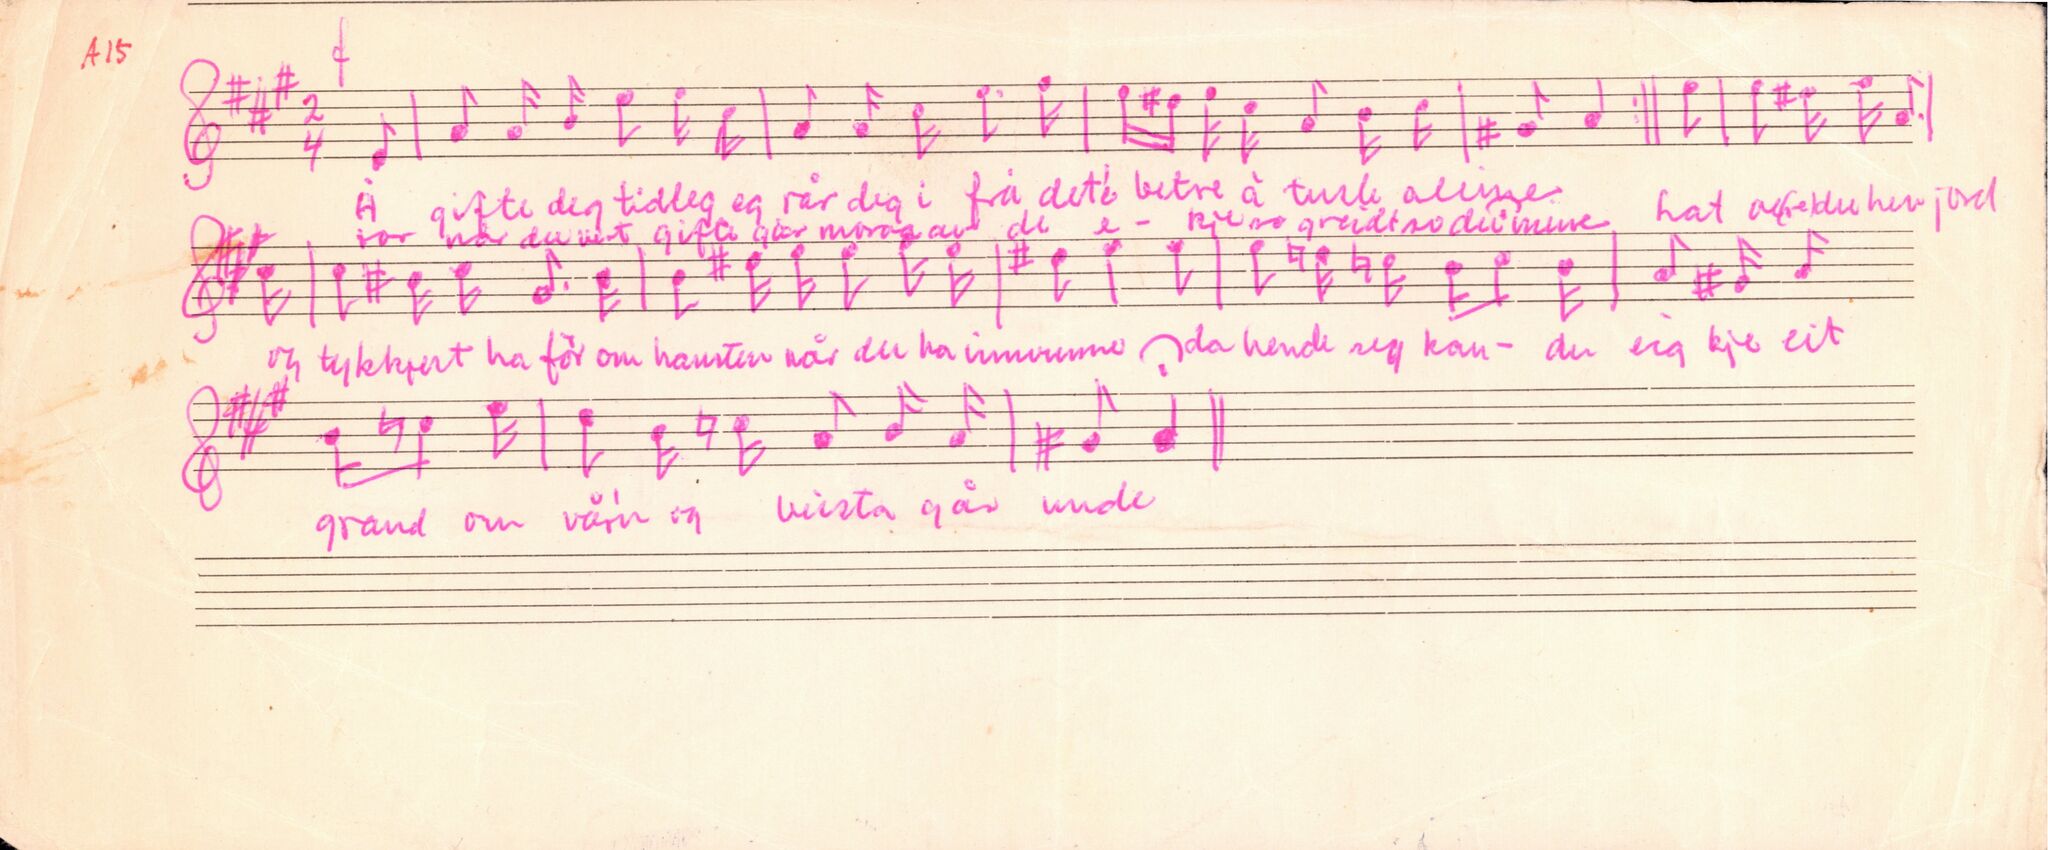 A15
2
4
Å gifte deg tidleg eg rår deg i frå det'e betre å tusle aleine
når du vert gift går moroa av de e - kje so greidt so dei meine hat du hev jord
og tykkjest ha fôr om hausten når du ha innvunne da hende seg kan - du eig kje eit
grand om vår'n og beista går unde